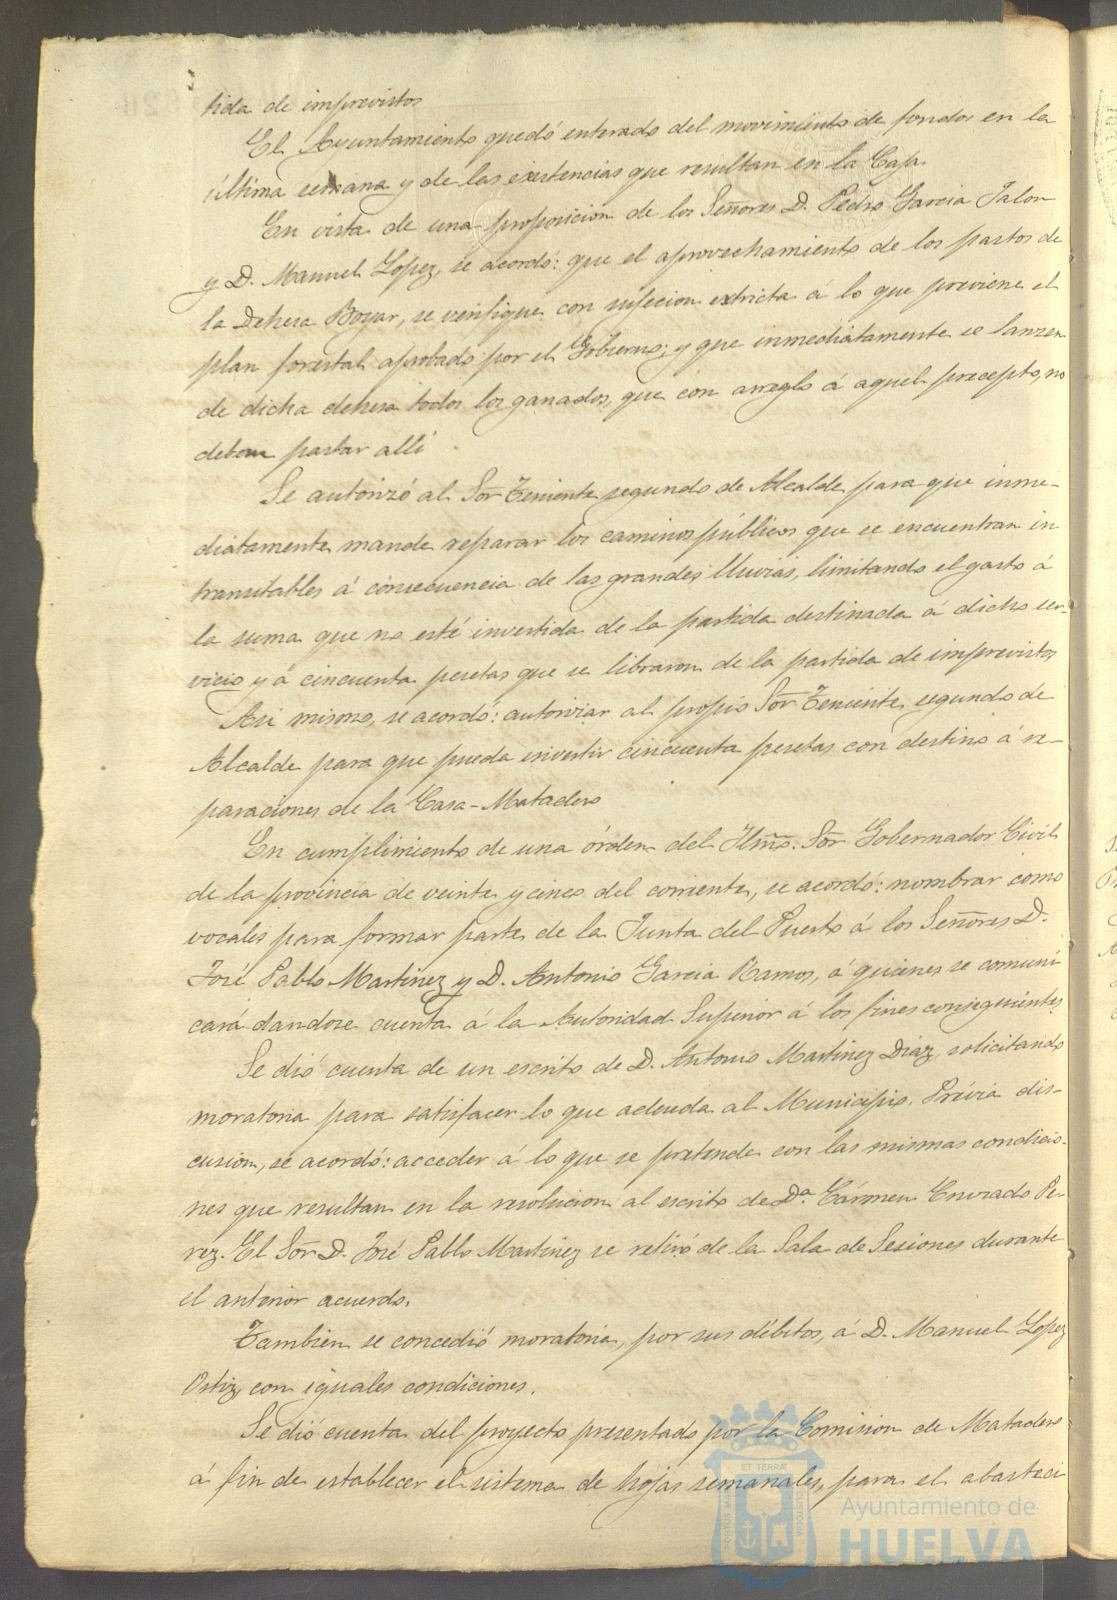 tida de imprevistos
El Ayuntamiento quedó enterado del movimiento de fondos en la
última semana y de las existencias que resultan en la Caja.
En vista de una proposicion de los Señores D. Pedro Garcia Jalon
y D. Manuel Lopez, se acordó: que el aprovechamiento de los pastos de
la Dehesa Boyar, se verifique con sujecion extricta á lo que previene el
plan forestal aprobado por el Gobierno; y que inmediatamente se lanzen
de dicha dehesa todos los ganados, que con arreglo á aquel precepto, no
deban pastar alli.
Se autorizó al Sor Teniente segundo de Alcalde para que inme-
diatamente mande reparar los caminos públicos que se encuentran in
transitables á consecuencia de las grandes lluvias, limitando el gasto á
la suma que no esté invertida de la partida destinada á dicho ser-
vicio y á cincuenta pesetas que se libraron de la partida de imprevistos
Asi mismo, se acordó: autorizar al propio Sor Teniente segundo de
Alcalde para que pueda invertir cincuenta pesetas con destino á re-
paraciones de la Casa-Matadero
En cumplimiento de una órden del Iltmo. Sor Gobernador Civil
de la provincia de veinte y cinco del corriente, se acordó: nombrar como
vocales para formar parte de la Junta del Puerto á los Señores D.
José Pablo Martinez y D. Antonio Garcia Ramos, á quienes se comuni
cará dandose cuenta á la Autoridad Superior á los fines consiguientes
Se dió cuenta de un escrito de D. Antonio Martinez Diaz, solicitando
moratoria para satisfacer lo que adeuda al Municipio. Prévia dis-
cusion, se acordó: acceder á lo que se pretende con las mismas condicio-
nes que resultan en la resolucion al escrito de Da. Cármen Pe-
rez. El Sor D. José Pablo Martinez se retiró de la Sala de Sesiones durante
el anterior acuerdo.
Tambien se concedió moratoria, por sus débitos, á D. Manuel López
Ortiz, con iguales condiciones.
Se dió cuenta del proyecto presentado por la Comision de Matadero
á fin de establecer el sistema de hojas semanales, para el abasteci
Ayuntamiento de
HUELVA